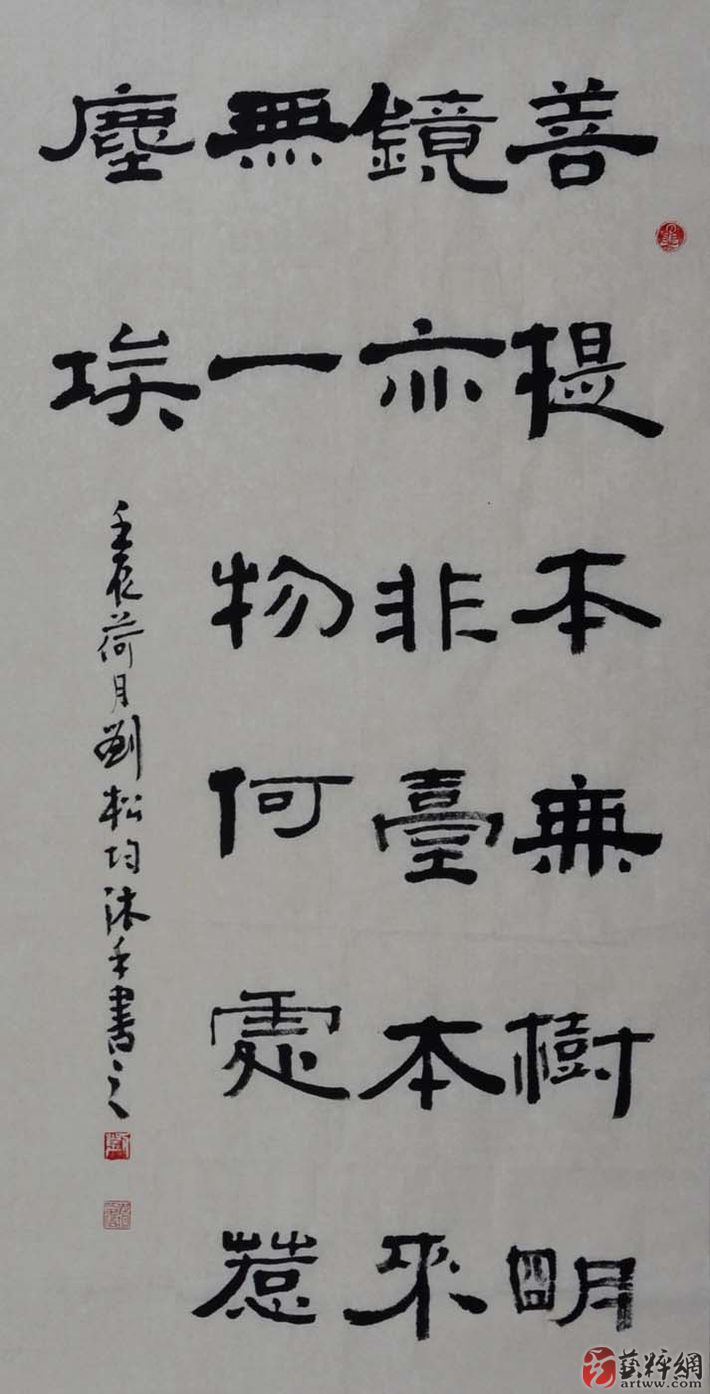 善提本無樹明
鏡亦非臺本來
無一物何處惹
塵埃
壬辰荷月劉松均沐手書之
藝粹網
artww.com